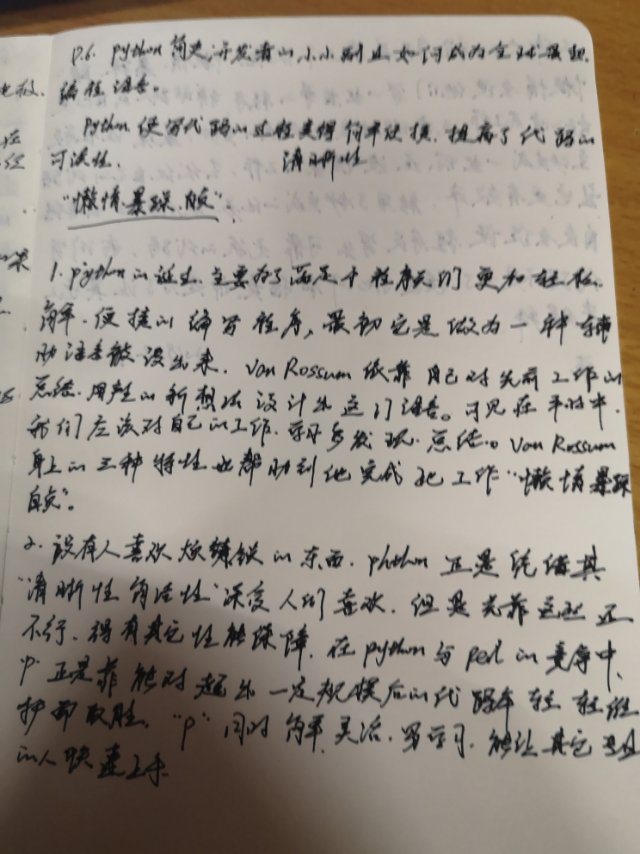 P.6. python 简史,开发者的小小副业如何成为全球最热
编程语言。
python 使写代码的过程变得简单快捷,提高了代码的
可读性. 清晰性
"懒惰.暴躁.自负".
1. python的诞生.主要为了满足于程序员们更加轻松.
简单.便捷的编写程序,最初它是做为一种辅
助语言被设出来. Van Rossum 依靠自己对先前工作的
总结.用产生的新想法设计出这门语言。可见在平时中,
我们应该对自己的工作.学习多发现.总结。Van Rossum
身上的三种特性也帮助到他完成了工作"懒惰暴躁
自负"。
2. 没有人喜欢烦锁的东西. phthn 正是凭借其
"清晰性 简洁性"深受人们喜欢. 但是光靠这些还
不行. 得有其它性能保障. 在 python 与 perl 的竞争中,
"P"正是靠能对超出一定规模后的代码 轻 轻维
护而取胜. "P" 同时简单.灵活.易学习.能让其它
的人快速上手.